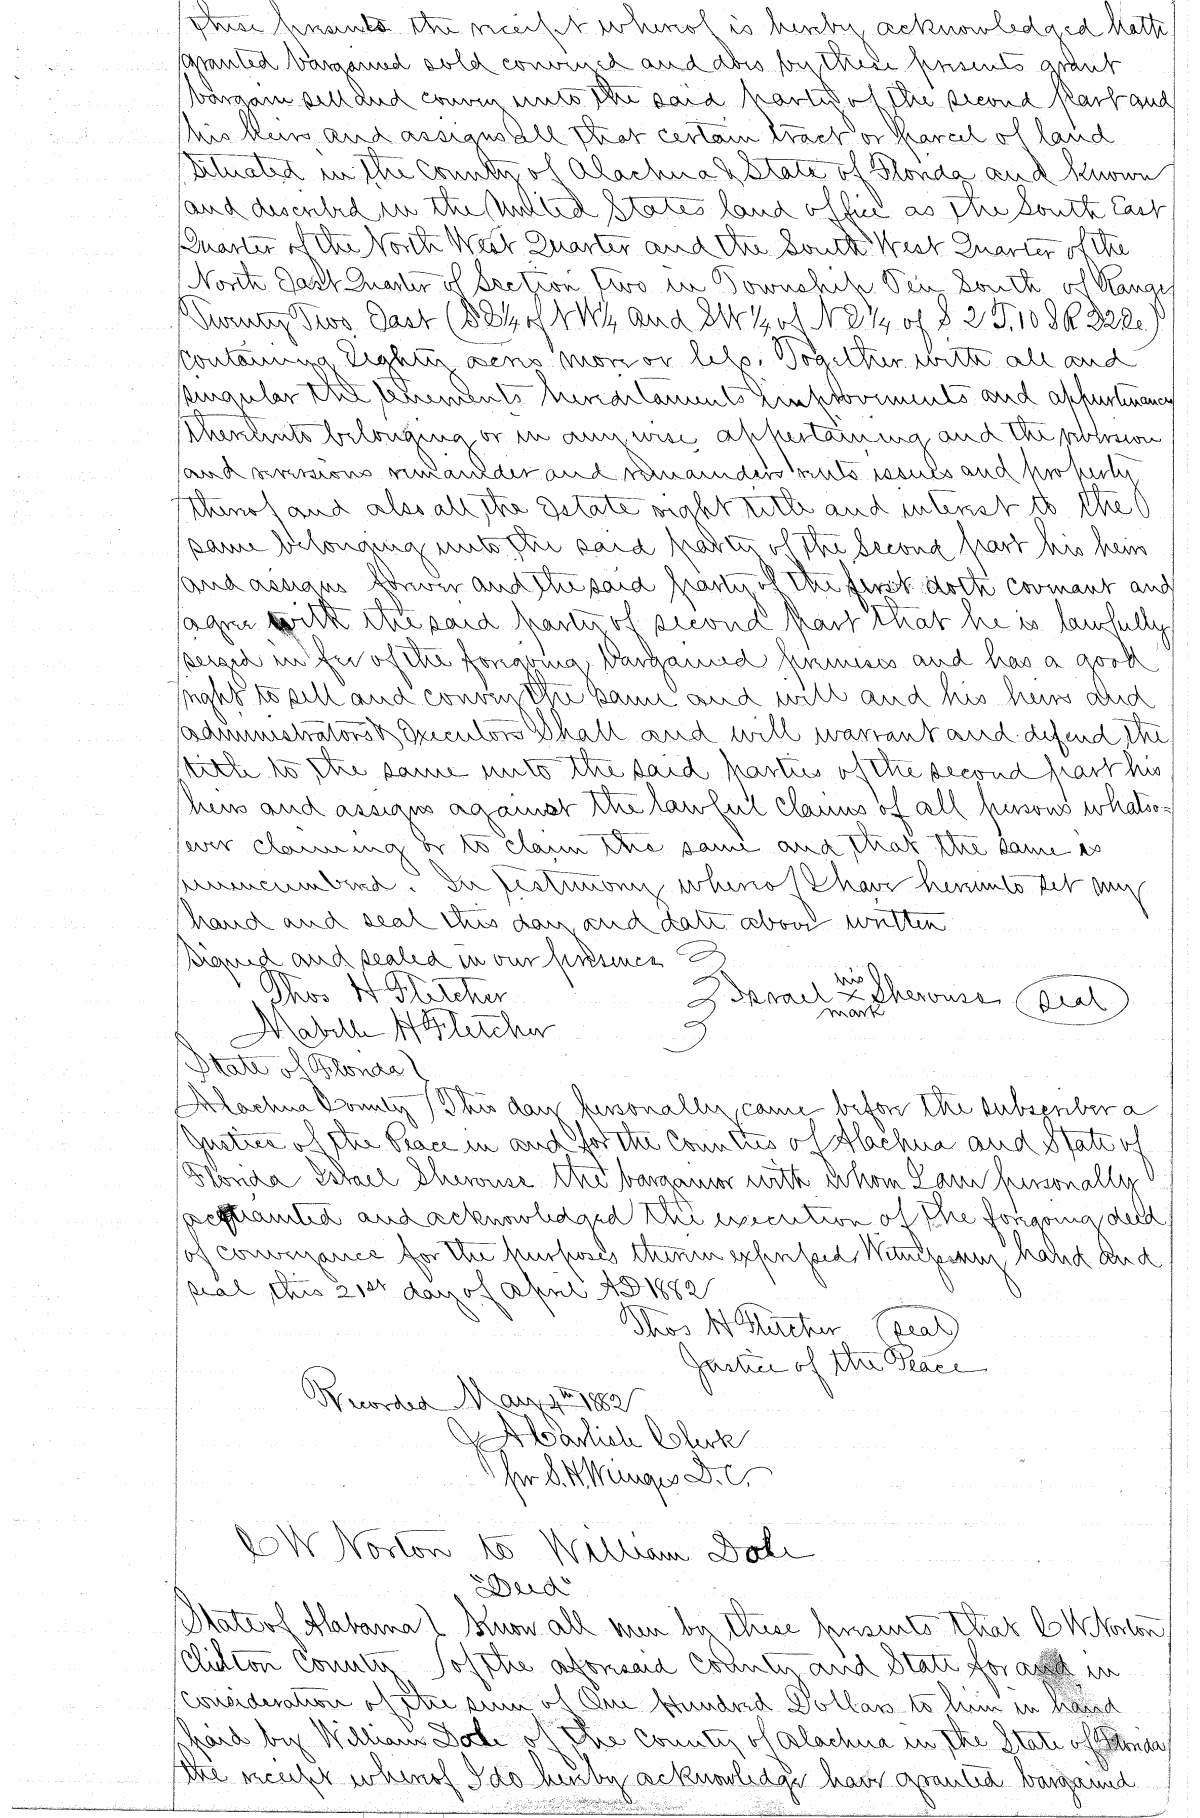 these presents the receipt whereof is hereby acknowledged hath
granted bargained sold conveyed and does by these presents grant
bargain sell and convey unto the said party of the second part and
his heirs and assigns all that certain tract or parcel of land
situated in the County of Alachua & State of Florida and known
and described in the United States land office as the South East
Quarter of the North West Quarter and the South West Quarter of the
North East Quarter of Section Two in Township Ten South of Range
Twenty Two East (SE¼ of NW¼ and SW¼ of NE¼ of S 2 T.10 S R 22 E.)
containing Eighty acres more or less. Together with all and
singular the tenements hereditaments improvements and appurtenances
thereunto belonging or in any wise appertaining and the reversion
and reversions remainder and remainders rents issues and property
thereof and also all the Estate right title and interest to the
same belonging unto the said party of the Second part his heirs
and assigns forever and the said party of the first doth covenant and
agree with the said party of second part that he is lawfully
seized in fee of the foregoing bargained premises and has a good
right to sell and convey the same and will and his heirs and
administrators & Executors Shall and will warrant and defend the
title to the same unto the said parties of the second part his
heirs and assigns against the lawful claims of all persons whatso=
ever claiming or to claim the same and that the same is
unencumbered. In testimony whereof I have hereunto set my
hand and seal this day and date above written
Signed and sealed in our presence
Thos H Fletcher
Mabelle H Fletcher
his
Israel x Sherouse (seal)
mark
State of Florida
Alachua County This day personally came before the subscriber a
Justice of the Peace in and for the Counties of Alachua and State of
Florida Israel Sherouse the bargainor with whom I am personally
acquainted and acknowledged the execution of the foregoing deed
of conveyance for the purposes therein expressed. Witness my hand and
seal this 21st day of April AD 1882
Thos H Fletcher (seal)
Justice of the Peace
Recorded May 4th 1882
J A Carlisle Clerk
pr S.H. Wienges D.C.
C W Norton to William Dole
"Deed"
State of Alabama Know all men by these presents that C W Norton
Chilton County of the aforesaid County and State for and in
consideration of the sum of One Hundred Dollars to him in hand
paid by William Dole of the County of Alachua in the State of Florida
the receipt whereof I do hereby acknowledge have granted bargained